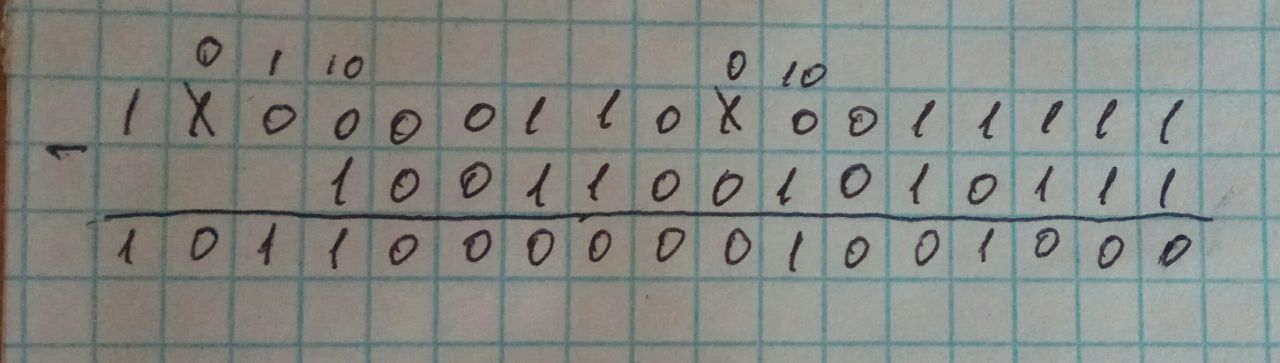 0 1 10 0 10
1 X 0 0 0 0 1 1 0 X 0 0 1 1 1 1 1
-
1 0 0 1 1 0 0 1 0 1 0 1 1 1
1 0 1 1 0 0 0 0 0 0 1 0 0 1 0 0 0